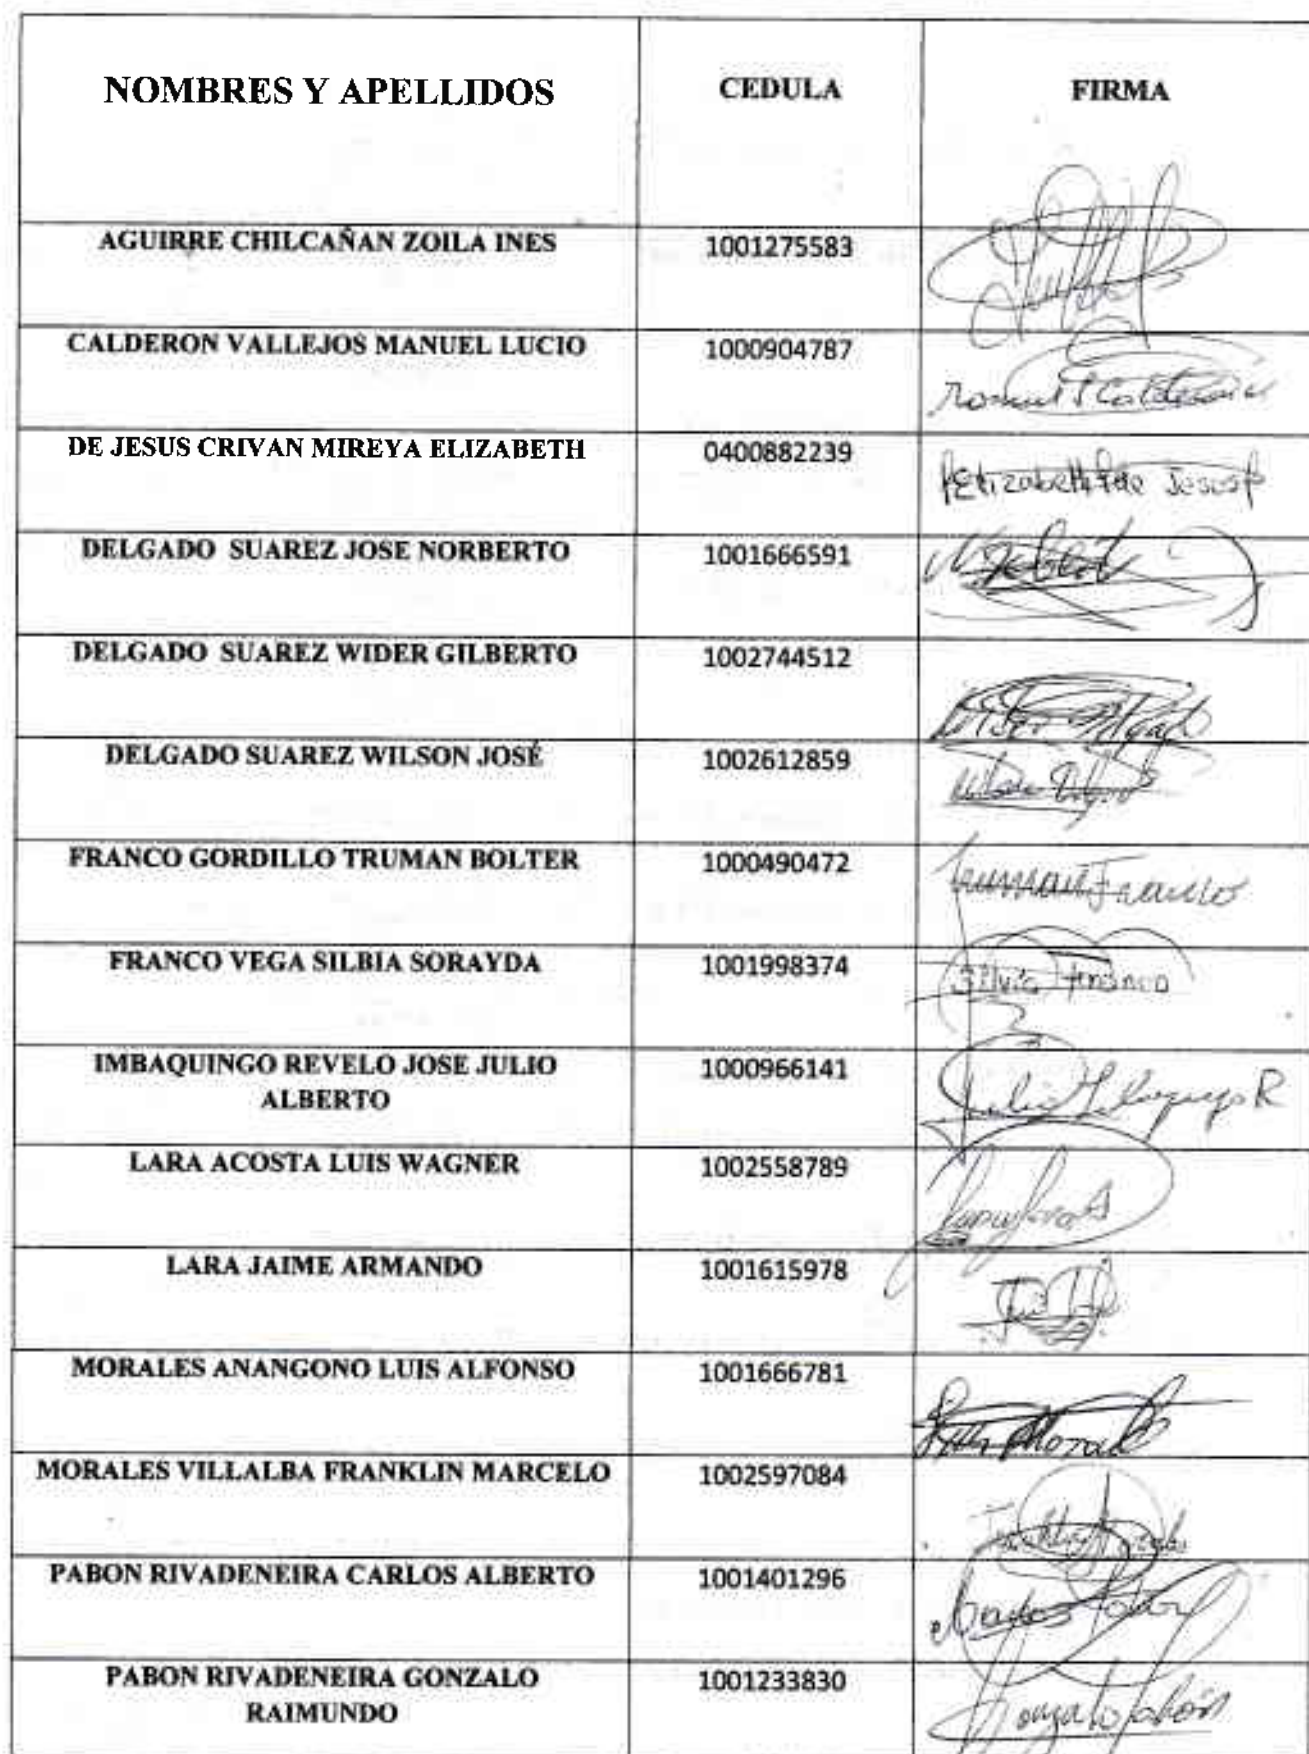 NOMBRES Y APELLIDOS CEDULA FIRMA
AGUIRRE CHILCAÑAN ZOILA INES 1001275583
CALDERON VALLEJOS MANUEL LUCIO 1000904787
DE JESUS CRIVAN MIREYA ELIZABETH 0400882239
Elizabeth de Jesus
DELGADO SUAREZ JOSE NORBERTO 1001666591
DELGADO SUAREZ WIDER GILBERTO 1002744512
DELGADO SUAREZ WILSON JOSÉ 1002612859
FRANCO GORDILLO TRUMAN BOLTER 1000490472
Truman Franco
FRANCO VEGA SILBIA SORAYDA 1001998374
Silvia Franco
IMBAQUINGO REVELO JOSE JULIO 1000966141
ALBERTO
LARA ACOSTA LUIS WAGNER 1002558789
LARA JAIME ARMANDO 1001615978
MORALES ANANGONO LUIS ALFONSO 1001666781
MORALES VILLALBA FRANKLIN MARCELO 1002597084
PABON RIVADENEIRA CARLOS ALBERTO 1001401296
Carlos Pabon
PABON RIVADENEIRA GONZALO 1001233830
RAIMUNDO
Gonzalo Pabón